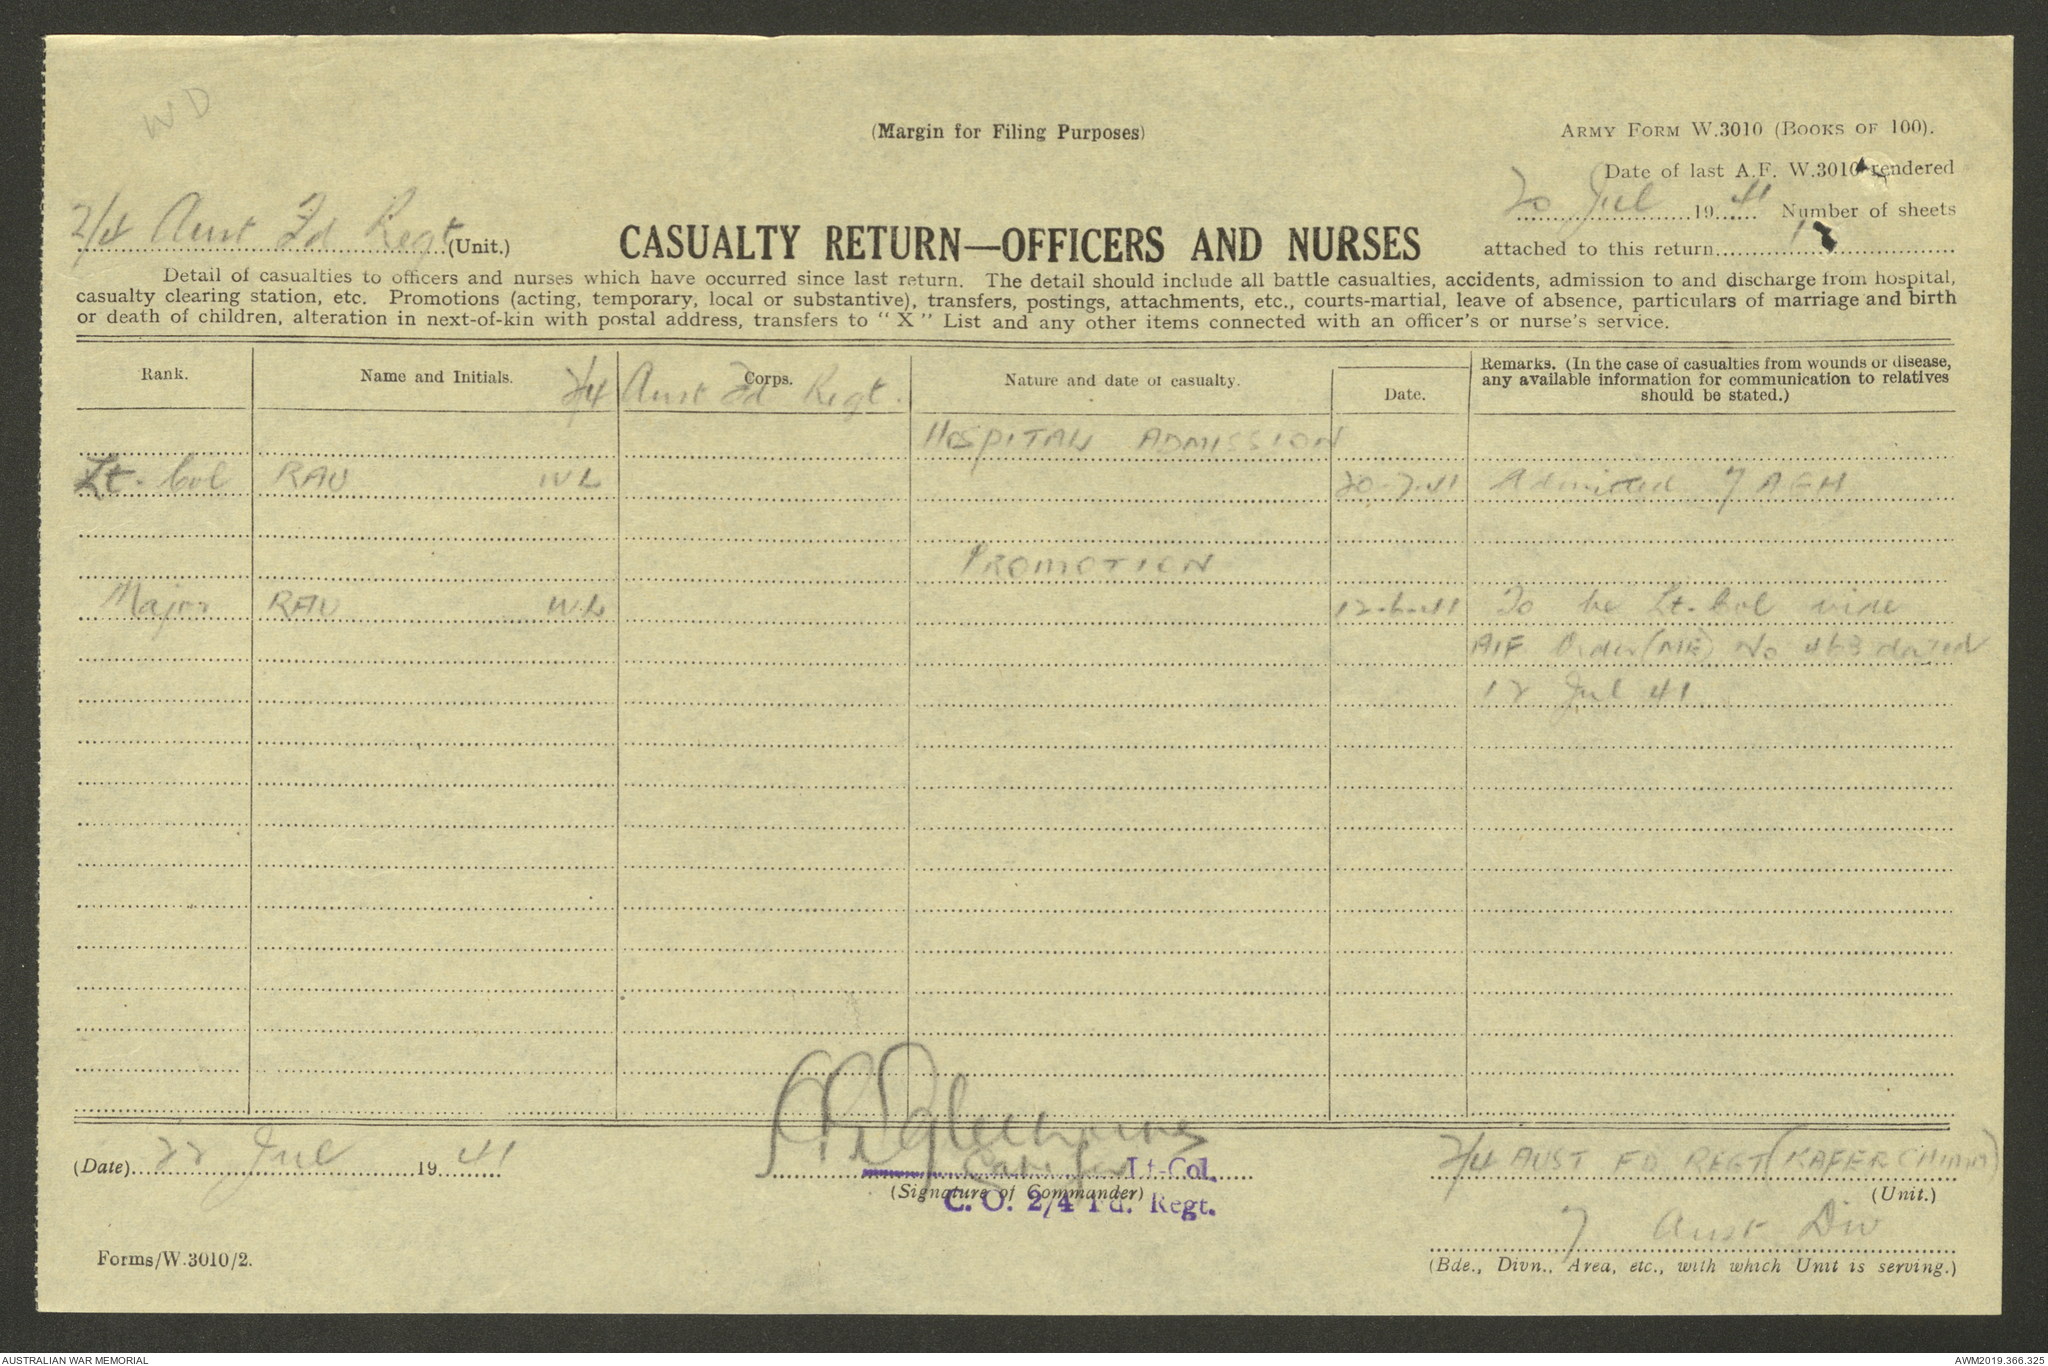 WD
(Margin for Filing Purposes)
ARMY FORM W.3010 (BOOKS OF 100).
Date of last A.F. W.3010 rendered
20 Jul 1941 Number of sheets
attached to this return 1
2/4 Aust Fd Regt (Unit.)
CASUALTY RETURN—OFFICERS AND NURSES
Detail of casualties to officers and nurses which have occurred since last return. The detail should include all battle casualties, accidents, admission to and discharge from hospital,
casualty clearing station, etc. Promotions (acting, temporary, local or substantive), transfers, postings, attachments, etc., courts-martial, leave of absence, particulars of marriage and birth
or death of children, alteration in next-of-kin with postal address, transfers to "X" List and any other items connected with an officer's or nurse's service.
Rank. Name and Initials. Corps. Nature and date of casualty. Date. Remarks. (In the case of casualties from wounds or disease,
any available information for communication to relatives
should be stated.)
2/4 Aust Fd Regt.
HOSPITAL ADMISSION
Lt-Col RAU WL 20-7-41 Admitted 7 AGH
PROMOTION
Major RAU WL 12-6-41 To be Lt-Col vide
AIF Order (ME) No 463 dated
12 Jul 41
(Date) 22 Jul 1941
Lt-Col.
(Signature of Commander)
C. O. 2/4 Fd. Regt.
2/4 AUST FD REGT (KAFER CHIMA)
(Unit.)
7 Aust Div
(Bde., Divn., Area, etc., with which Unit is serving.)
Forms/W.3010/2.
AUSTRALIAN WAR MEMORIAL
AWM2019.366.325